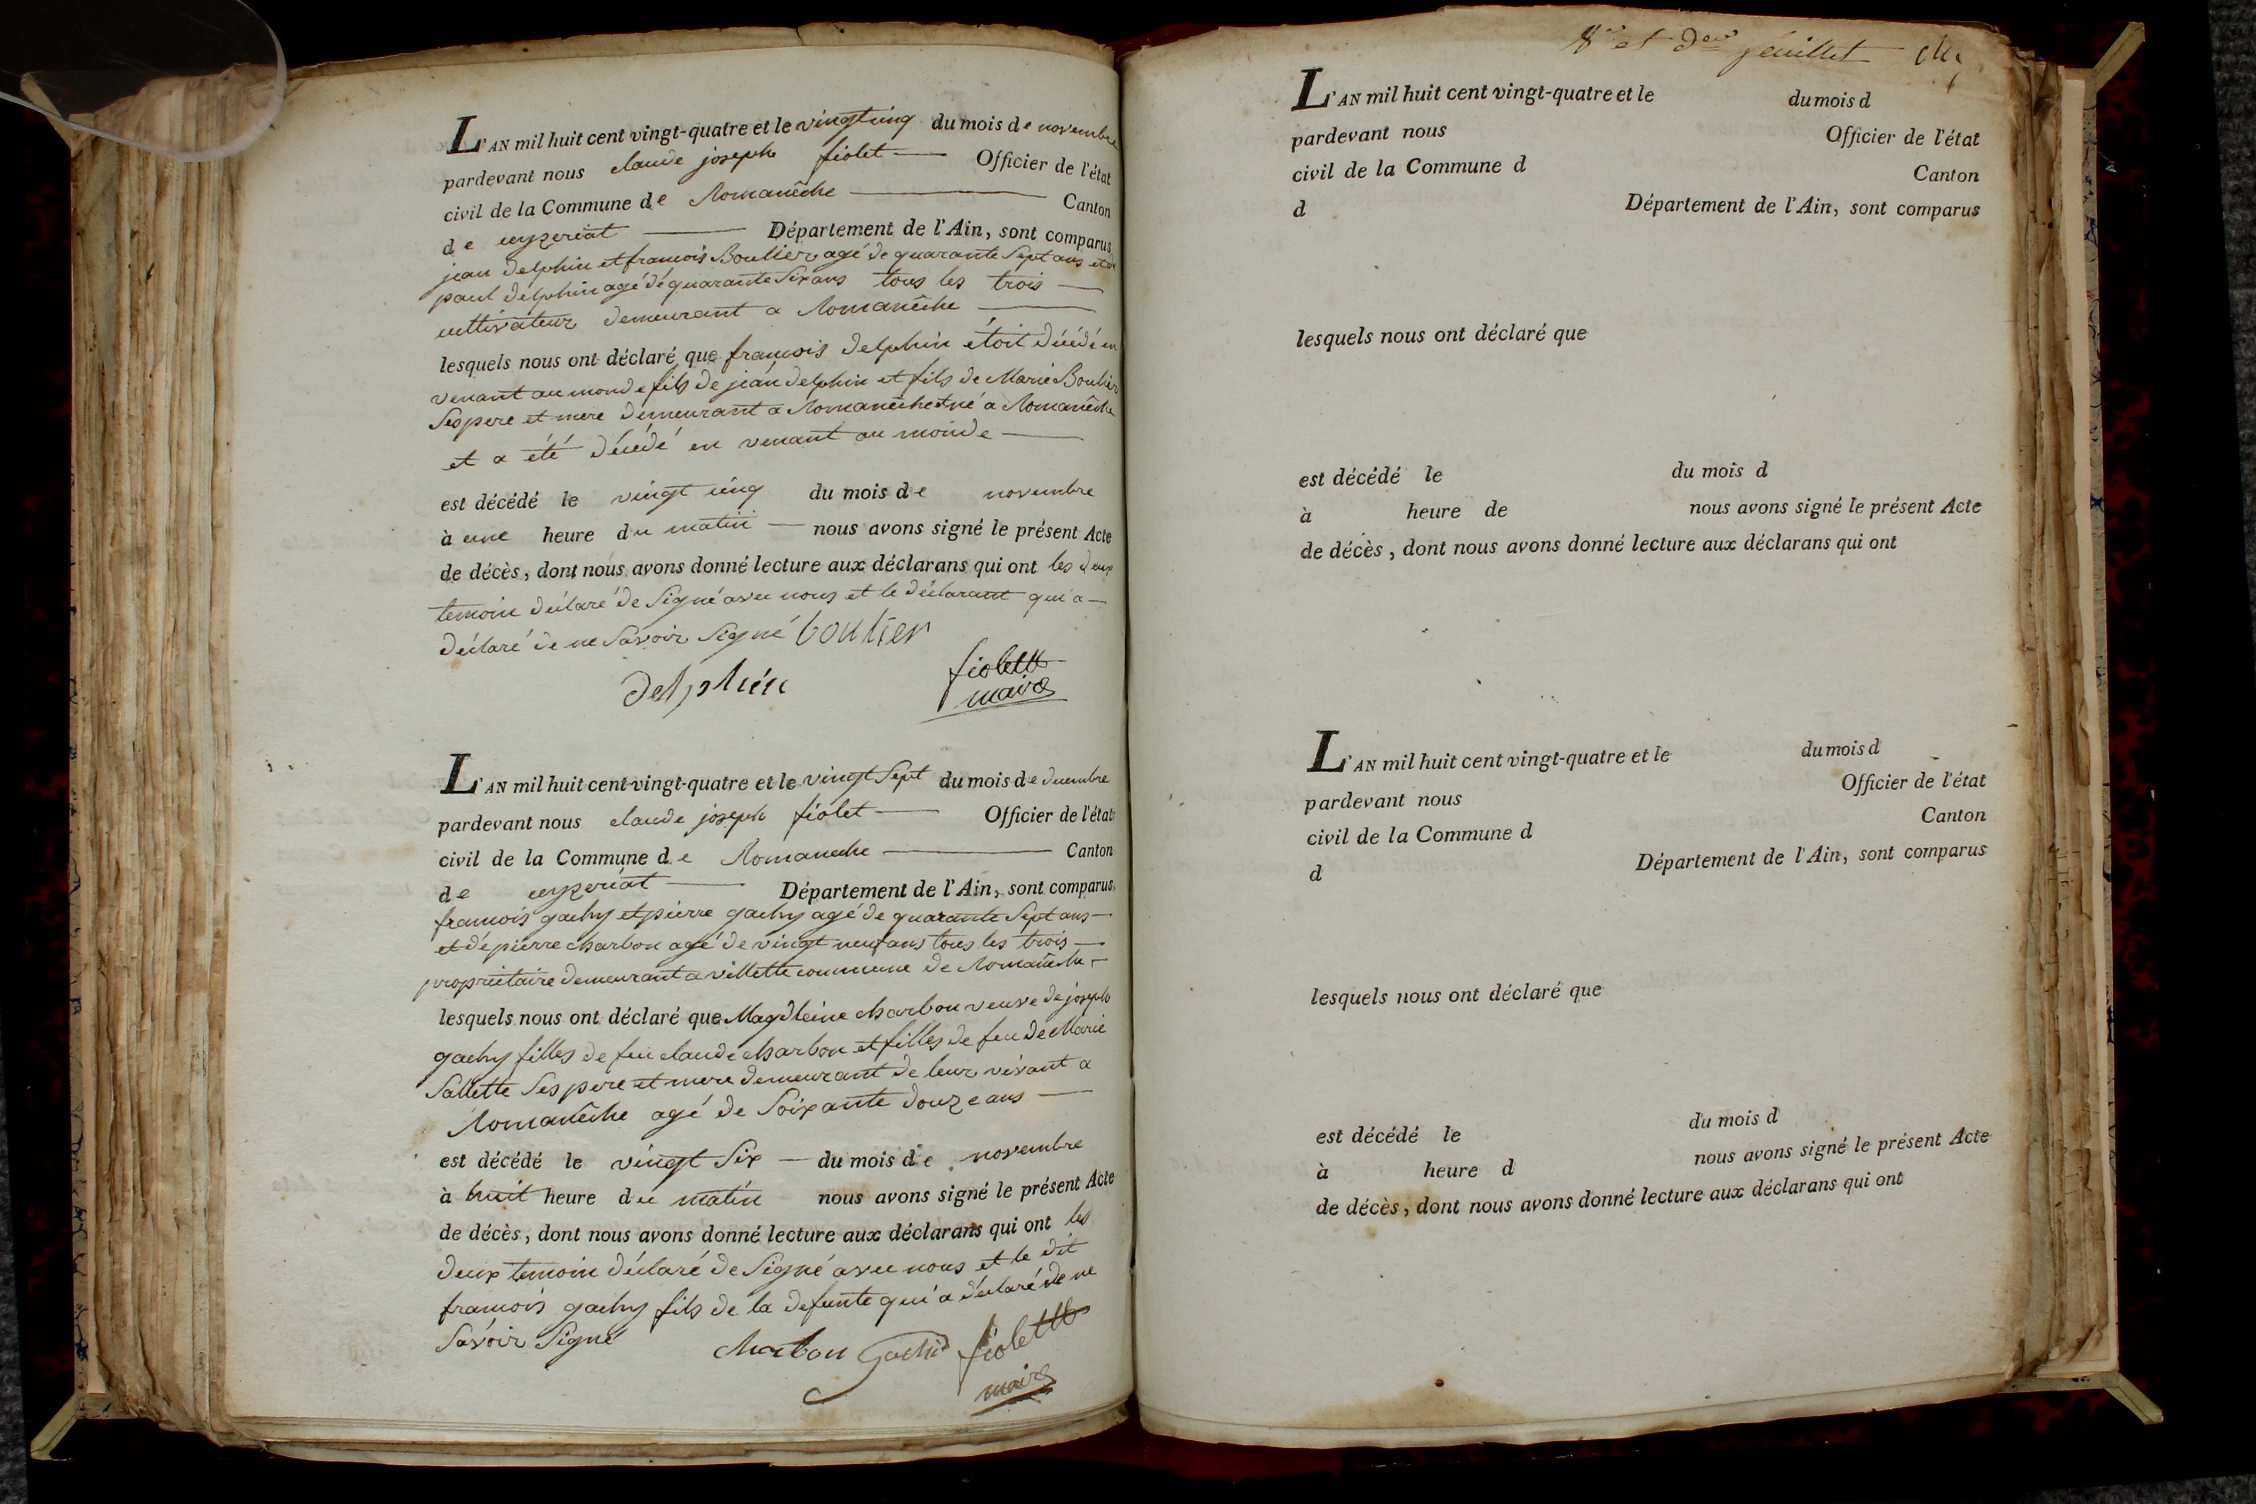 L'AN mil huit cent vingt-quatre et le vingt cinq du mois de novembre
pardevant nous claude joseph fiolet Officier de l'état
civil de la Commune de Romanêche Canton
de ceyzeriat Département de l'Ain, sont comparus
jean delphin et francois Boullier agé de quarante Sept ans et de
paul delphin agé dé quarante Six ans tous les trois
cultivateur demeurant a Romanêche
lesquels nous ont déclaré que francois delphin étoit décédé en
venant au monde fils de jean delphin et fils de Marie Boulier
Ses pere et mere demeurant a Romanêche et né a Romanêche
et a été décédé en venant au monde
est décédé le vingt cinq du mois de novembre
à une heure du matin nous avons signé le présent Acte
de décès, dont nous avons donné lecture aux déclarans qui ont les deux
temoin déclaré de Signé avec nous et le déclarant qui a
déclaré de ne Savoir Signé boulier
delphin fiolet
maire
L'AN mil huit cent vingt-quatre et le vingt Sept du mois de decembre
pardevant nous claude joseph fiolet Officier de l'état
civil de la Commune de Romaneche Canton
de ceyzeriat Département de l'Ain, sont comparus
francois gachy et pierre gachy agé de quarante Sept ans
et dé pierre charbon agé de vingt neuf ans tous les trois
proprietaire demeurant a villette commune de Romanêche
lesquels nous ont déclaré que Magdleine charbon veuve de joseph
gachy filles de feu claude charbon et filles de feu de Marie
Sallette Ses pere et mere demeurant de leur vivant a
Romanêche agé de Soixante douze ans
est décédé le vingt Six du mois de novembre
à huit heure du matin nous avons signé le présent Acte
de décès, dont nous avons donné lecture aux déclarans qui ont les
deux temoin déclaré de Signé avec nous et le dit
francois gachy fils de la defunte qui a déclaré de ne
Savoir Signé charbon Gachi fiolet
maire
8e et der feuillet
L'AN mil huit cent vingt-quatre et le du mois d
pardevant nous Officier de l'état
civil de la Commune d Canton
d Département de l'Ain, sont comparus
lesquels nous ont déclaré que
est décédé le du mois d
à heure de nous avons signé le présent Acte
de décès, dont nous avons donné lecture aux déclarans qui ont
L'AN mil huit cent vingt-quatre et le du mois d
pardevant nous Officier de l'état
civil de la Commune d Canton
d Département de l'Ain, sont comparus
lesquels nous ont déclaré que
est décédé le du mois d
à heure d nous avons signé le présent Acte
de décès, dont nous avons donné lecture aux déclarans qui ont